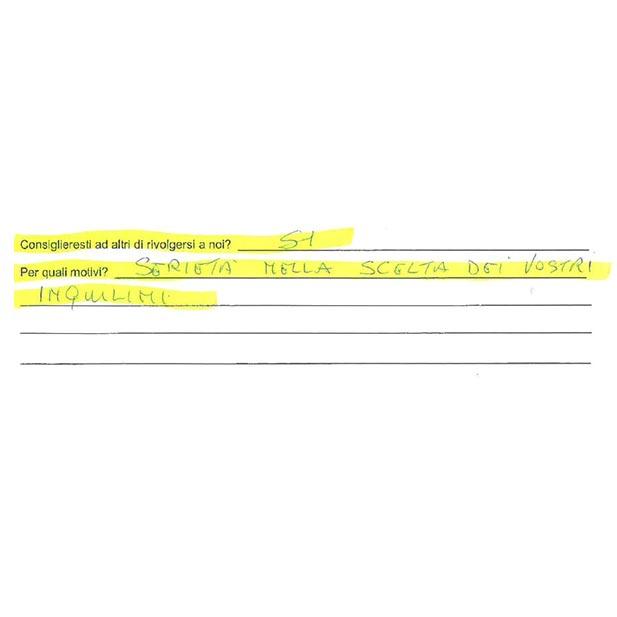 Consiglieresti ad altri di rivolgersi a noi? SI
Per quali motivi? SERIETA' NELLA SCELTA DEI VOSTRI
INQUILINI